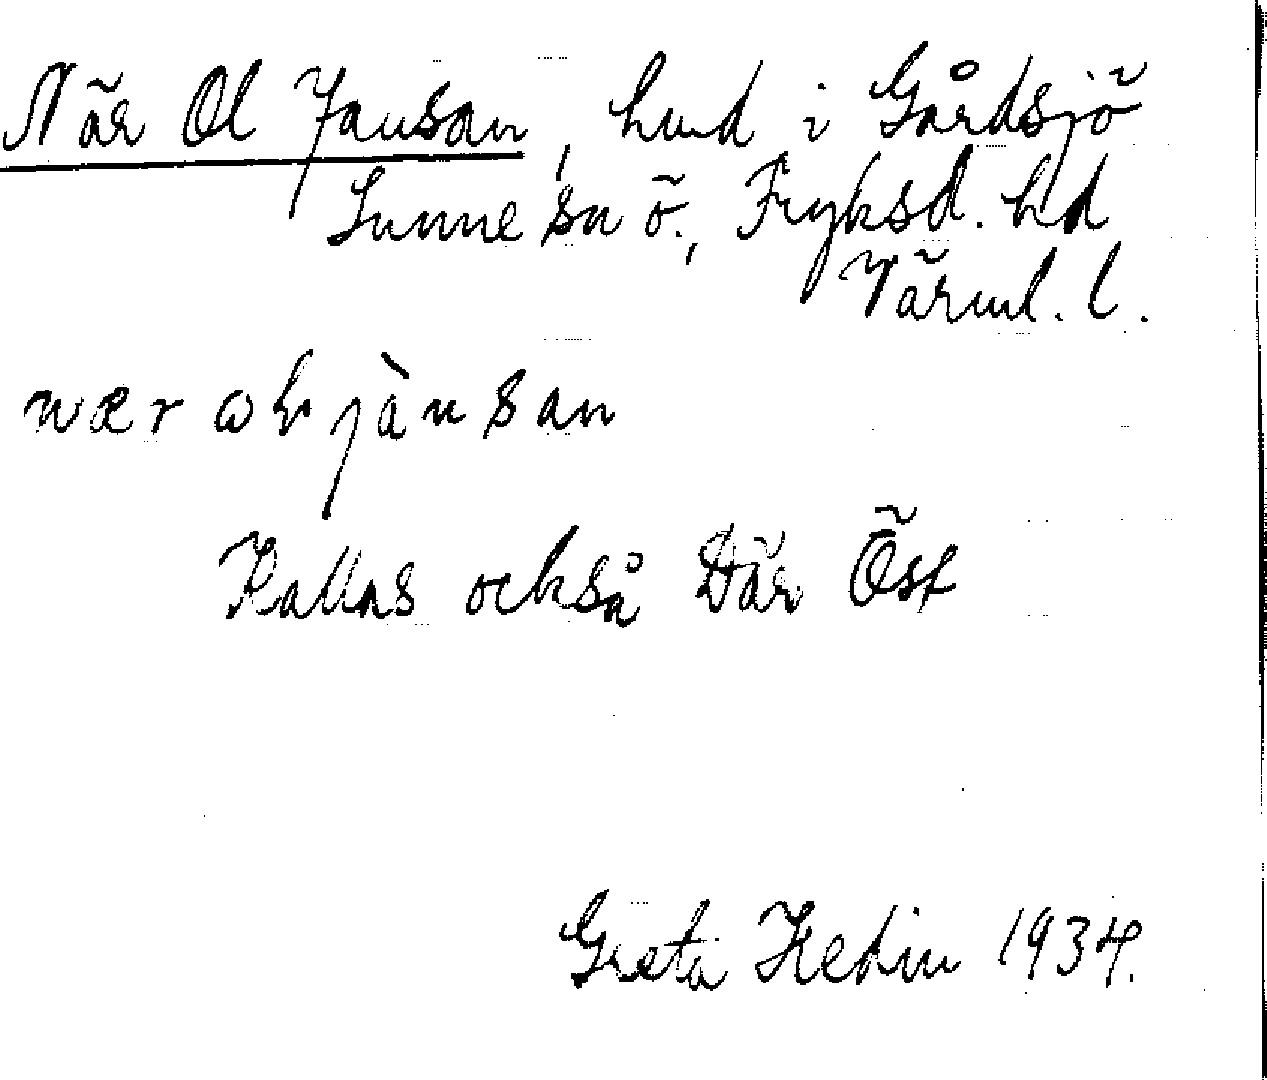 När Ol Jansan, hmd i Gårdsjö
Sunne sn ö., Fryksd. hd
Värml. l.
nær jànsan
Kallas också Där Öst
Greta Hedin 1934.